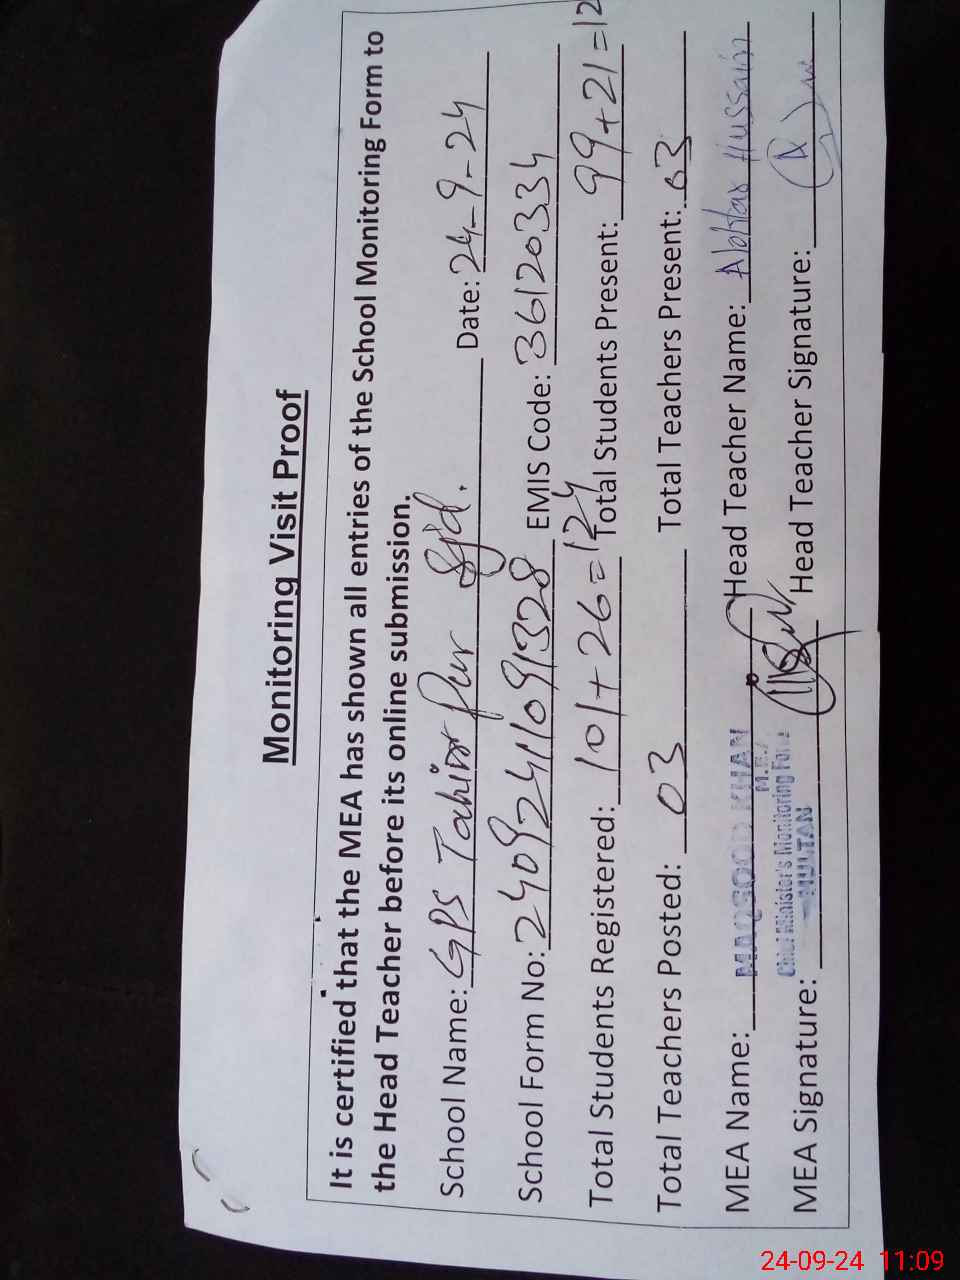 Monitoring Visit Proof
It is certified that the MEA has shown all entries of the School Monitoring Form to
the Head Teacher before its online submission.
School Name: GPS Tahir Pur Sjd. Date: 24-9-24
School Form No: 24092411091328 EMIS Code: 36120334
Total Students Registered: 101+26=124 Total Students Present: 99+21=12
Total Teachers Posted: 03 Total Teachers Present: 03
MEA Name: MAQSOOD KHAN Head Teacher Name: Akhtar Hussain
M.E.A
Chief Minister's Monitoring Force
MULTAN
MEA Signature: Head Teacher Signature:
24-09-24 11:09